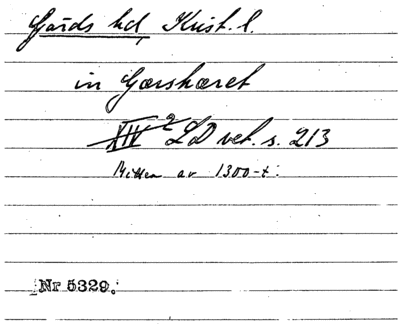 Gärds hd, Krist. l.
in Gærshæret
XIV 2 LD vet. s. 213
Mitten av 1300-t.
Nr 5329.